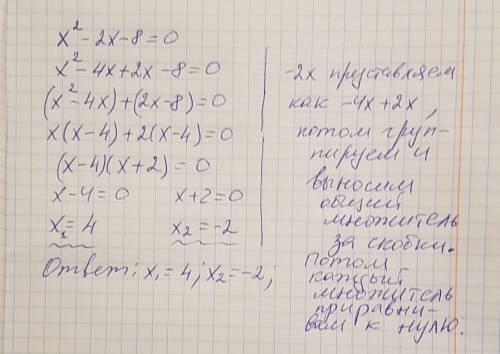 x² - 2x - 8 = 0
x² - 4x + 2x - 8 = 0
(x² - 4x) + (2x - 8) = 0
x(x - 4) + 2(x - 4) = 0
(x - 4)(x + 2) = 0
x - 4 = 0 x + 2 = 0
x₁ = 4 x₂ = -2
Ответ: x₁ = 4; x₂ = -2;
-2x прдставляем
как -4x + 2x,
потом груп-
пируем и
выносим
общий
множитель
за скобки.
Потом
каждый
множитель
приравни-
вам к нулю.